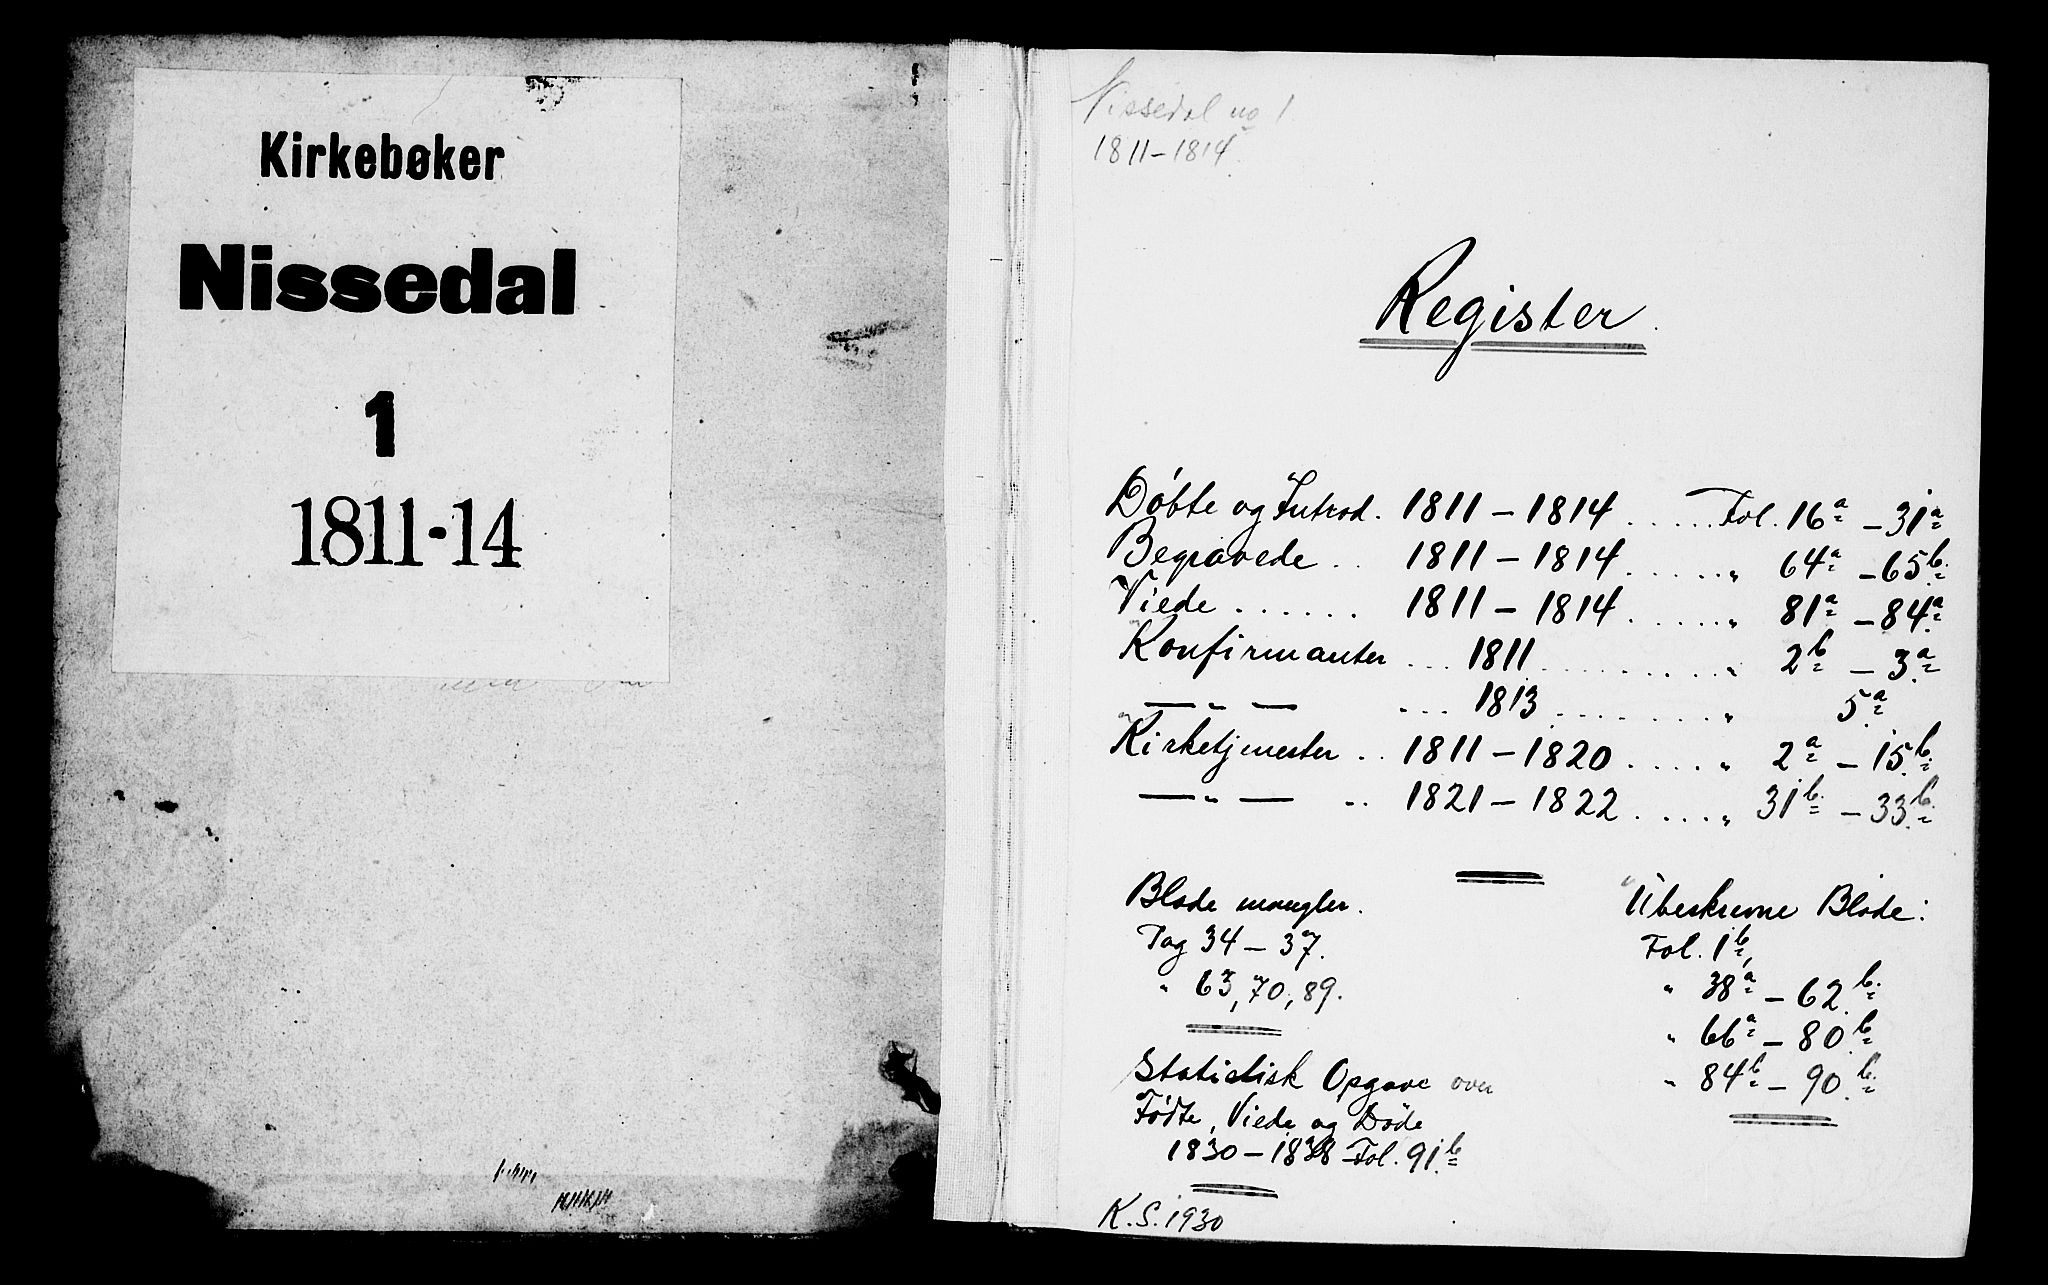 Kirkebøker
Nissedal
1
1811-14
Nissedal no 1
1811-1814.
Register.
Døbte og Introd. 1811 - 1814 ..... Fol. 16a - 31a
Begravede .. 1811 - 1814 ...... " 64a - 65b.
Viede ...... 1811 - 1814 ...... " 81a - 84a
Konfirmanter ... 1811 ......... " 2b - 3a
— " — ... 1813 ......... " 5a
Kirketjenester .. 1811 - 1820 ..... " 2a - 15b.
— " — .. 1821 - 1822 ..... " 31b. - 33b.
Blade mangler.
Pag 34 - 37.
" 63, 70, 89.
Statistisk Opgave over
Fødte, Viede og Døde
1830 - 1838 Fol. 91b.
K.S. 1930
Ubeskrevne Blade:
Fol. 1b,
" 38a - 62b.
" 66a - 80b.
" 84b - 90b.